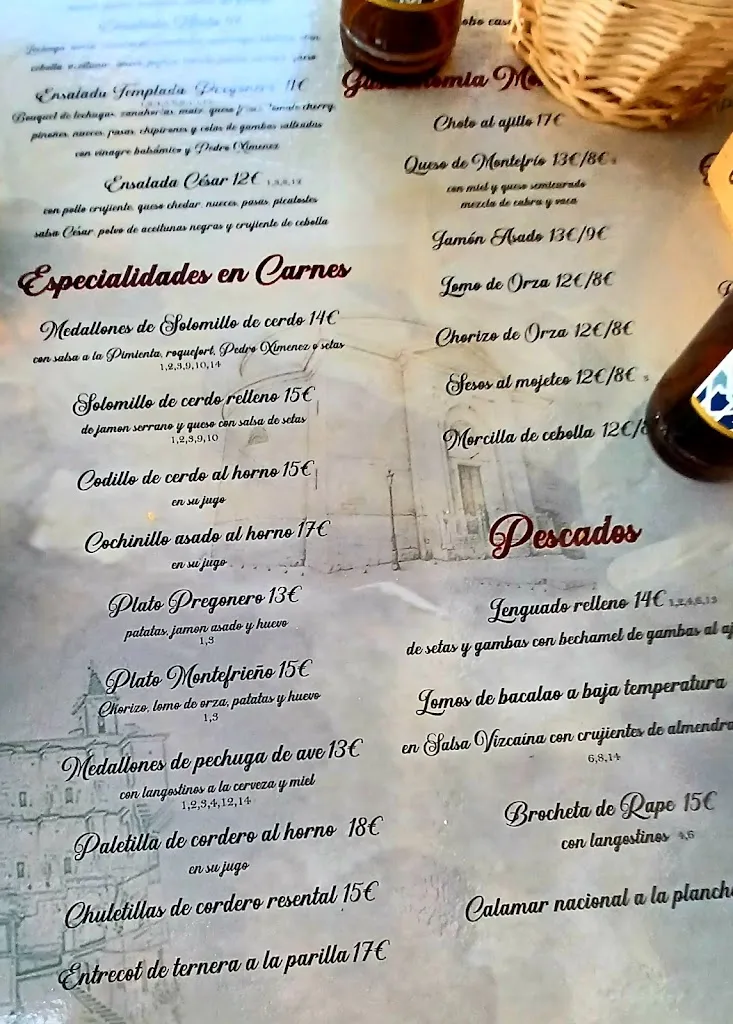 Ensalada Templada Pregonero 11€
Bouquet de lechugas, zanahorias, maiz, queso fresco, Tomate cherry,
piñones, nueces, pasas, chipirones y colas de gambas salteadas
con vinagre balsámico y Pedro Ximenez
Ensalada César 12€
con pollo crujiente, queso chedar, nueces, pasas, picatostes
salsa César, polvo de aceitunas negras y crujiente de cebolla
Especialidades en Carnes
Medallones de Solomillo de cerdo 14€
con salsa a la Pimienta, roquefort, Pedro Ximenez o setas
1,2,3,9,10,14
Solomillo de cerdo relleno 15€
de jamon serrano y queso con salsa de setas
1,2,3,9,10
Codillo de cerdo al horno 15€
en su jugo
Cochinillo asado al horno 17€
en su jugo
Plato Pregonero 13€
patatas, jamon asado y huevo
1,3
Plato Montefrieño 15€
Chorizo, lomo de orza, patatas y huevo
1,3
Medallones de pechuga de ave 13€
con langostinos a la cerveza y miel
1,2,3,4,12,14
Paletilla de cordero al horno 18€
en su jugo
Chuletillas de cordero resental 15€
Entrecot de ternera a la parilla 17€
Choto al ajillo 17€
Queso de Montefrío 13€/8€
con miel y queso semicurado
mezcla de cabra y vaca
Jamón Asado 13€/9€
Lomo de Orza 12€/8€
Chorizo de Orza 12€/8€
Sesos al mojeteo 12€/8€
Morcilla de cebolla 12€/8
Pescados
Lenguado relleno 14€
de setas y gambas con bechamel de gambas al aj
Lomos de bacalao a baja temperatura
en Salsa Vizcaina con crujientes de almendra
6,8,14
Brocheta de Rape 15€
con langostinos 4,6
Calamar nacional a la planch